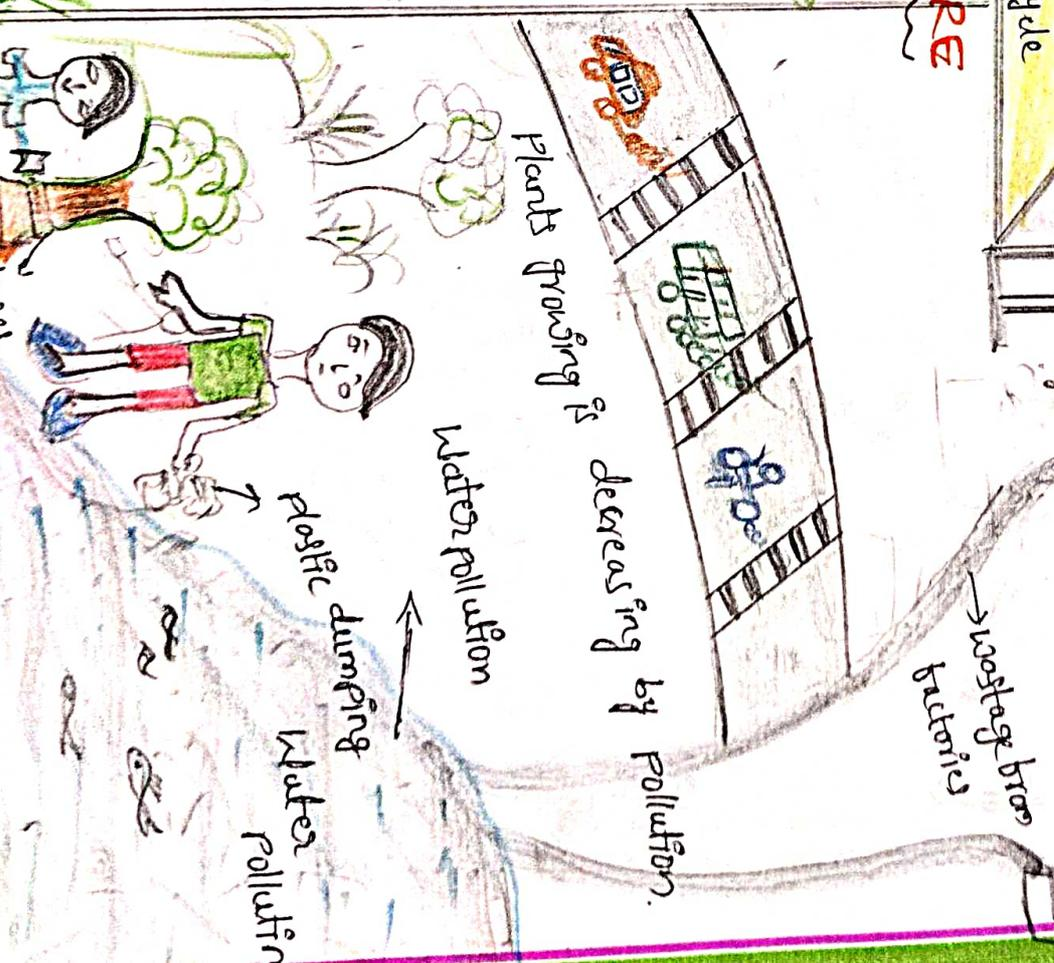 ycle
RE
wastage from
factories
Plants growing is decreasing by pollution.
Water pollution
plastic dumping
Water
Pollutin